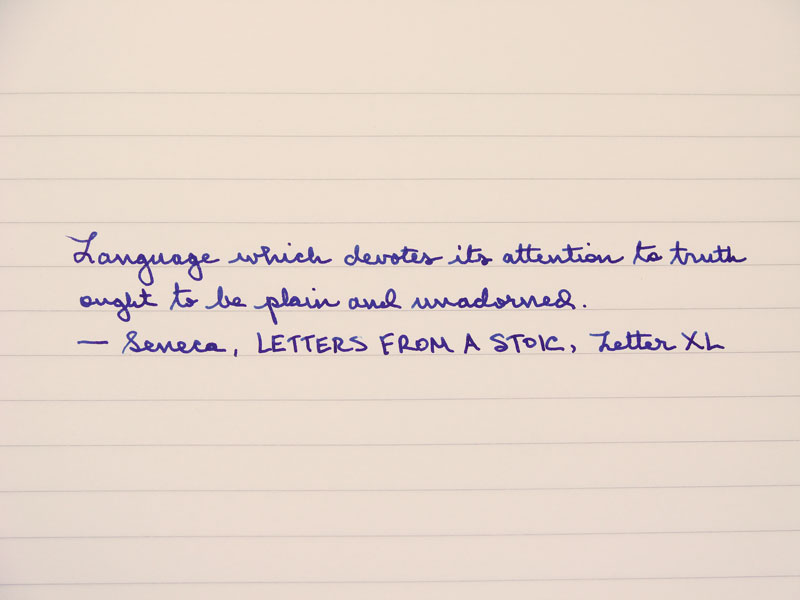 Language which devotes its attention to truth
ought to be plain and unadorned.
— Seneca, LETTERS FROM A STOIC, Letter XL